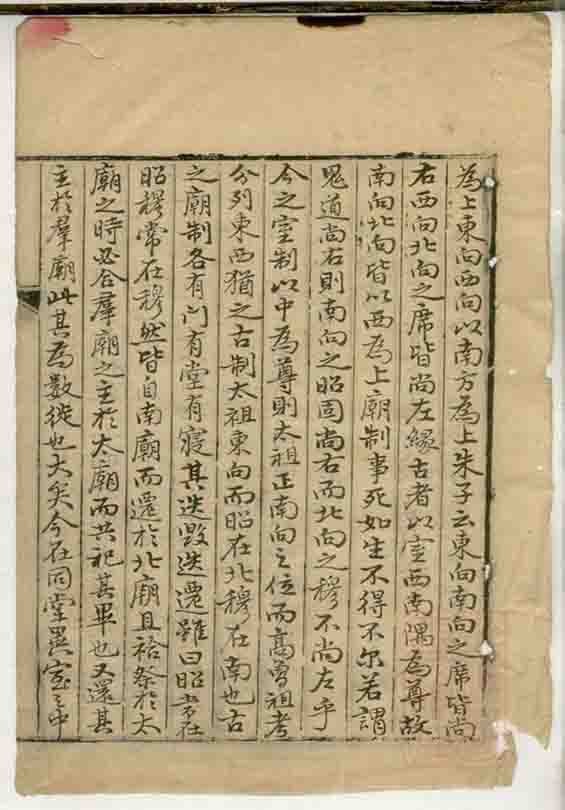 為上東向西向以南方為上朱子云東向南向之席皆尚
右西向北向之席皆尚左緣古者以室西南隅為尊故
南向北向皆以西為上廟制事死如生不得不尔若謂
鬼道尚右則南向之昭固尚右而北向之穆不尚左乎
今之室制以中為尊則太祖正南向之位而高曾祖考
分列東西猶之古制太祖東向而昭在北穆在南也古
之廟制各有門有堂有寢其迭毀迭遷雖曰昭常在
昭穆常在穆然皆自南廟而遷於北廟且祫祭於太
廟之時必合羣廟之主於太廟而共祀其畢也又還其
主於羣廟此其為數徙也大矣今在同堂異室之中